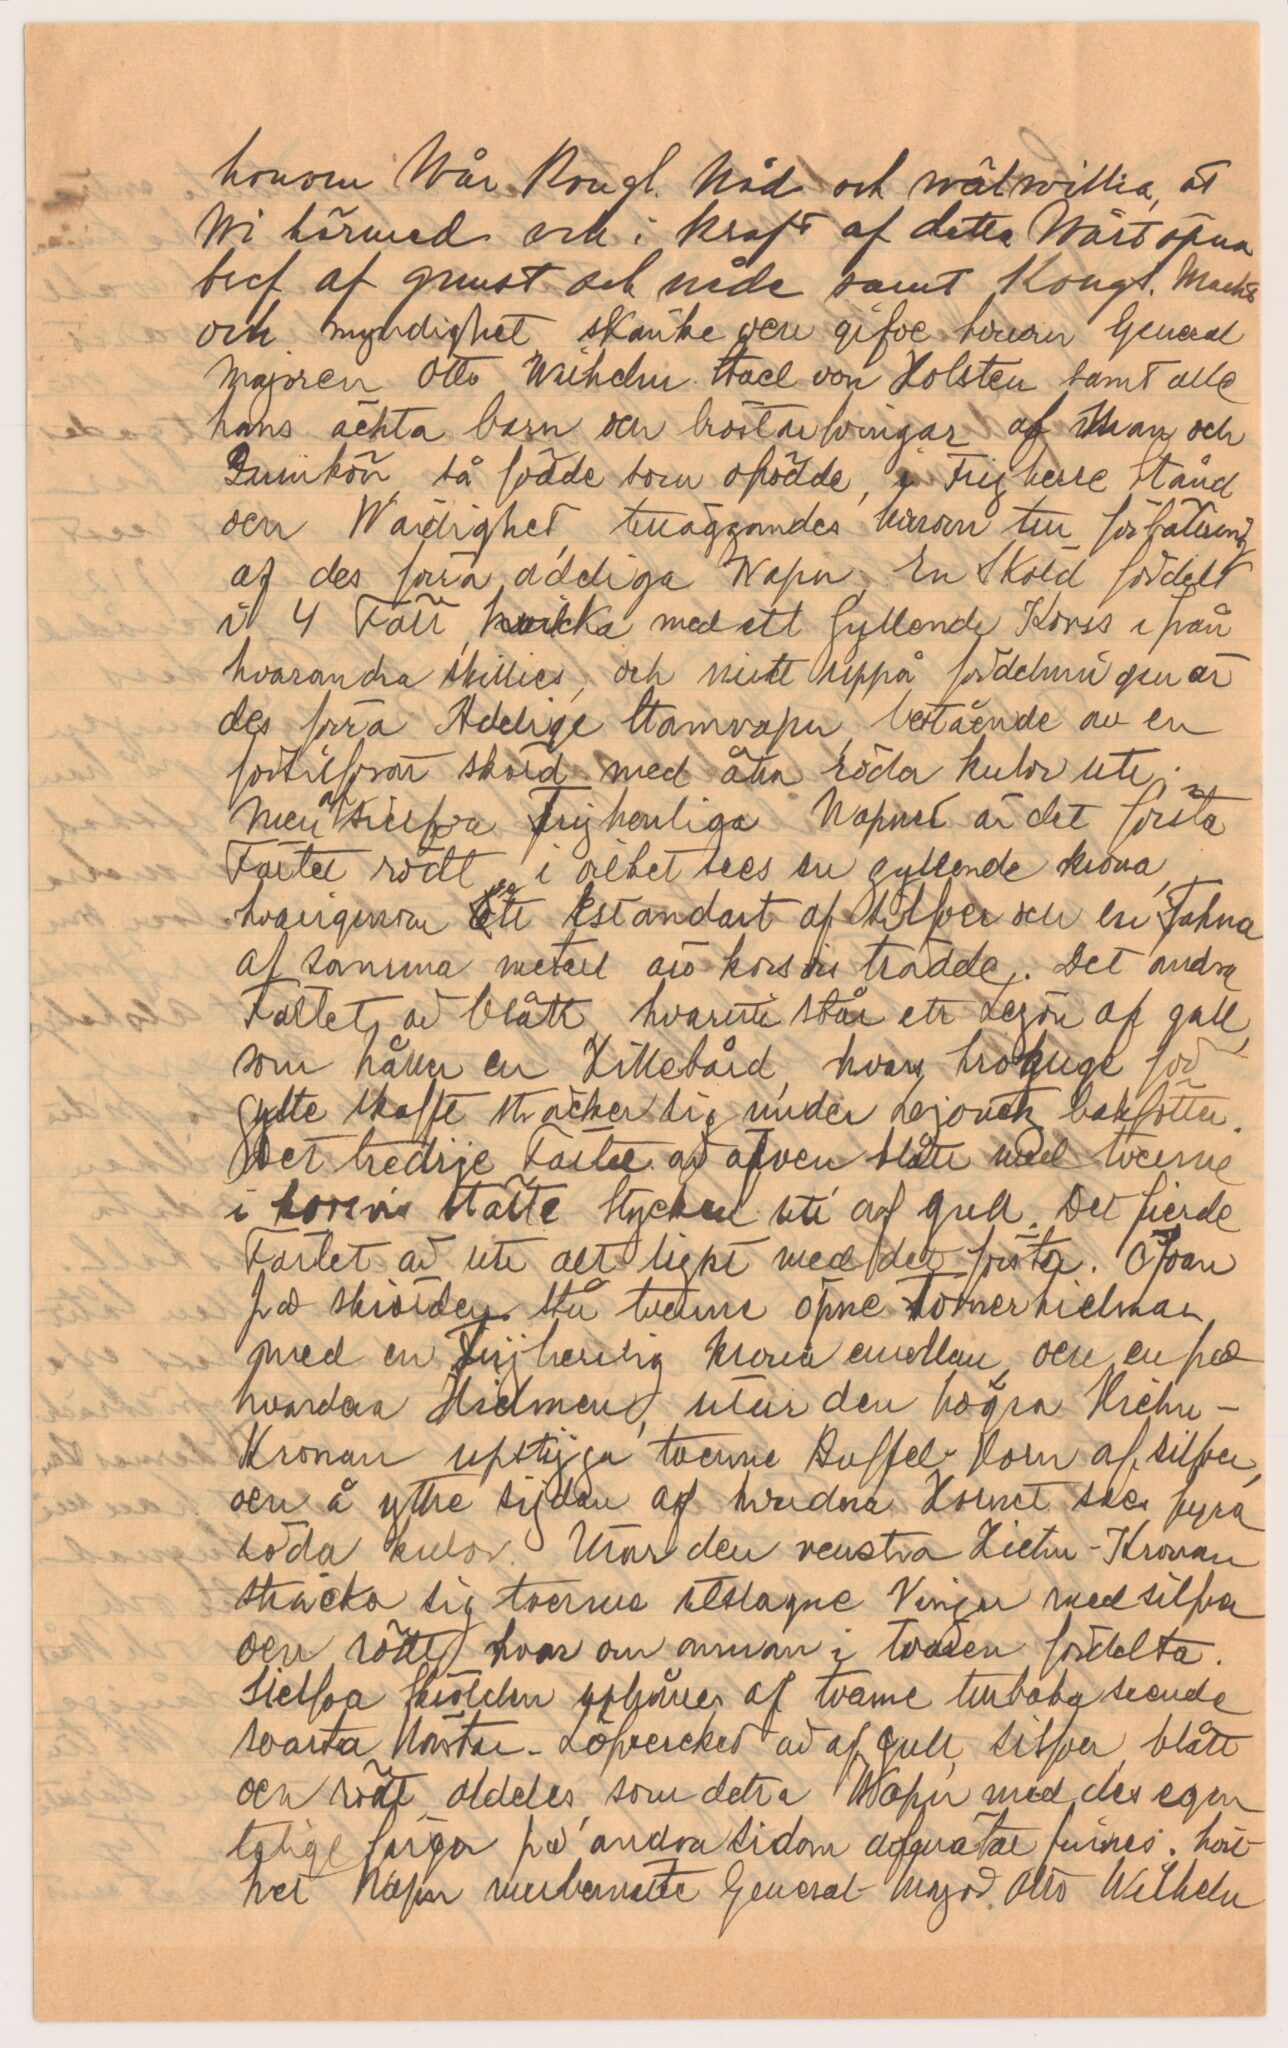 honom Wår Kongl. Nåd och wälwillia, at
Wi härmed och i kraft af detta Wårt öpna
bref af gunst och nåde samt Kongl. Macht
och myndighet skänke och gifve honom General
Majoren Otto Wilhelm Stael von Holsten samt alle
hans ächta barn och bröstarfvingar af Man och
Quinkön så födde som ofödde, i Frijherre Stånd
och Wärdighet, tilläggandes honom till förbättring
af des förra adeliga Wapn, En Sköld fördelt
i 4 Fält, hvilka med ett gyllende Korss ifrån
hvarandra skillies, och mitt uppå fördelningen är
des förra Adelige Stamvapn, bestående av en
förtilfvrat sköld med åtta röda kulor uti.
Men i sielfva Frijherrliga Wapnet är det första
Fältet rödt, i vilket sees en gyllende krona,
hvarigenom ett Estandart af silfver och en Fahna
af samma metall äro korsvis trädde. Det andra
Fältet är blått, hvaruti står ett Lejon af gull,
som håller en Hillebård, hvars krokuge för
gylte skafft sträcker sig under Lejonets bakfötter.
Det tredije Fältet är äfven blått med tvenne
i korsvis stälte Stycken uti af gull. Det fierde
Fältet är uti alt lijkt med det första. Ofvan
på skiölden stå tvenne öpne Tornerhielmar
med en Frijherrlig krona emellan, och en på
hvardera Hielmen, utur den högra Hielm-
Kronan upstijga tvenne Buffel-Horn af silfver,
och å yttre sijdan af hvardera Hornet sees fyra
röda kulor. Utur den venstra Hielm-Kronan
sträcka sig tvenne utslagne Vingar med silfver
och rödt hvar om annan i tvären fördelta.
Sielfva skiölden uphålles af tvenne tillbaka seende
svarta Hästar. Löfvercket är af gull, silfver, blått
och rödt, aldeles som detta Wapn med des egen
telige färgor på andra sidom afmålat finnes. hvil-
ket Wapn merbemälte General-Major Otto Wilhelm